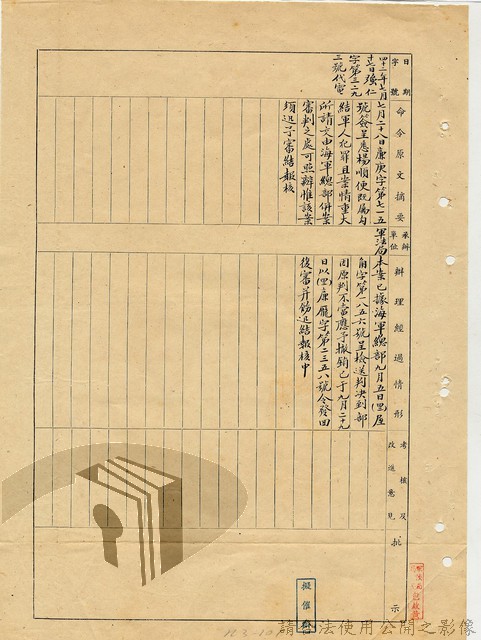 日期
字號
四十二年七月
廿七日強仁
字第三二九
三號代電
命令原文摘要
七月二十八日廉庚字第七一五
號簽呈悉楊順便既屬勾
結軍人犯罪且案情重大
所請交由海軍總部併案
審判之處可照辦惟該案
須迅予審結報核
承辦單位
軍法局
辦理經過情形
本案已據海軍總部九月五日(四二)
角字第一八五六號呈檢送判決到部
因原判不當應予撤銷已于九月二十九
日以(四二)廉龐字第二三五八號令發回
復審并飭迅結報核中
考核及
改進意見
批示
擬催
請合法使用公開之影像